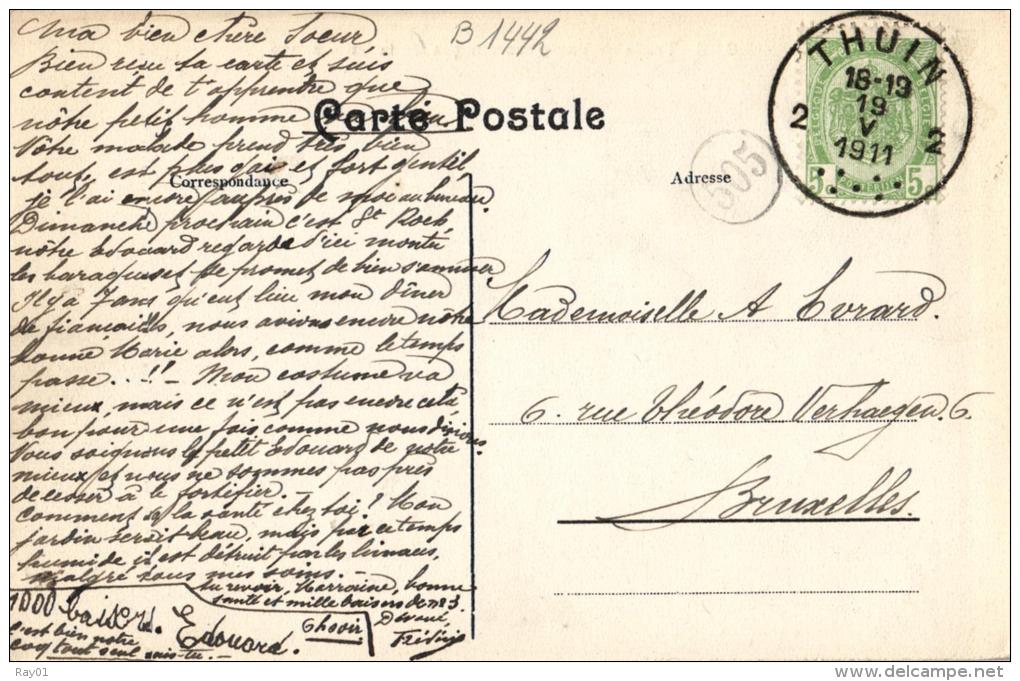 B 1442
THUIN
18-19
19
V
1911
2 2
BELGIQUE BELGIE
5 POSTERIJEN 5
505
Carte Postale
Correspondance
Adresse
Ma bien chère Soeur
Bien reçu ta carte et suis
content de t'apprendre que
nôtre petit homme
Vôtre malade prend très bien
tout, est plus gai et fort gentil,
je l'ai encore auprès de moi au bureau.
Dimanche prochain c'est St Roch
nôtre Edouard regarde d'ici monter
les baraques et se promet de bien s'amuser
Il y a 7 ans qu'eut lieu mon dîner
de fiançailles, nous avions encore nôtre
bonne Marie alors, comme le temps
passe..!! - Mon costume va
mieux, mais ce n'est pas encore cela,
bon pour une fois comme nous disions.
Nous soignons le petit Edouard de notre
mieux et nous ne sommes pas près
de cesser à le fortifier. -
Comment va la santé chez toi? Mon
jardin serait beau, mais par ce temps
humide il est détruit par les limaces,
malgré tous mes soins. -
Au revoir, Marraine, bonne
santé et mille baisers de nos 3.
Dévoué,
1000 baisers. Edouard.
c'est bien notre
coq tout seul sais-tu. -
Mademoiselle A Evrard.
6. rue Théodore Verhaegen. 6.
Bruxelles.
Ray01
delcampe.net